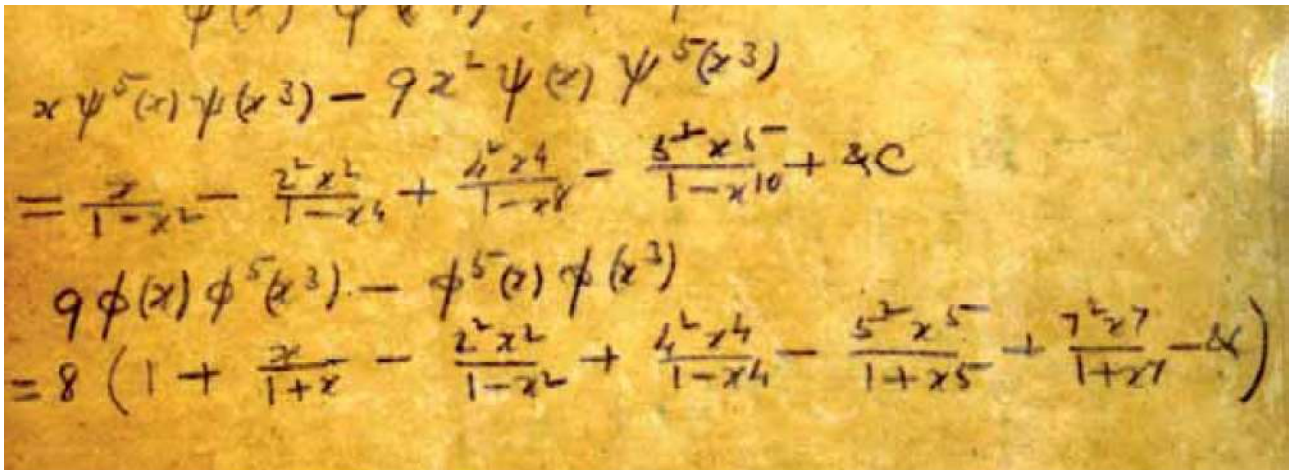 x ψ⁵(x) ψ(x³) − 9x² ψ(x) ψ⁵(x³)
= x/(1−x²) − 2²x²/(1−x⁴) + 4²x⁴/(1−x⁸) − 5²x⁵/(1−x¹⁰) + &c
9 φ(x) φ⁵(x³) − φ⁵(x) φ(x³)
= 8 (1 + x/(1+x) − 2²x²/(1−x²) + 4²x⁴/(1−x⁴) − 5²x⁵/(1+x⁵) + 7²x⁷/(1+x⁷) − &c)